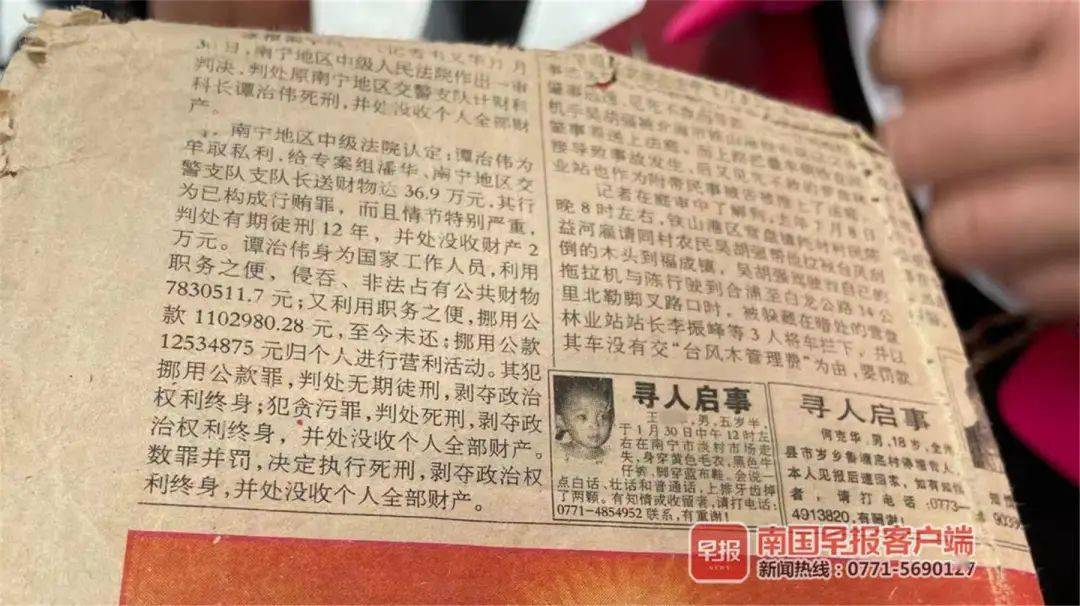 30日,南宁地区中级人民法院作出一审
判决,判处原南宁地区交警支队计财科
科长谭治伟死刑,并处没收个人全部财
产。
南宁地区中级法院认定:谭治伟为
牟取私利,给专案组潘华、南宁地区交
警支队支队长送财物达36.9万元,其行
为已构成行贿罪,而且情节特别严重,
判处有期徒刑12年,并处没收财产2
万元。谭治伟身为国家工作人员,利用
职务之便,侵吞、非法占有公共财物
7830511.7元;又利用职务之便,挪用公
款1102980.28元,至今未还;挪用公款
12534875元归个人进行营利活动。其犯
挪用公款罪,判处无期徒刑,剥夺政治
权利终身;犯贪污罪,判处死刑,剥夺政
治权利终身,并处没收个人全部财产。
数罪并罚,决定执行死刑,剥夺政治权
利终身,并处没收个人全部财产。
接导致事故发生
业站也作为附带民事被告被推上了
记者在庭审中了解到,去年7月8日
晚8时左右,铁山港区营盘镇
益河雇请同村农民吴胡强帮他
倒的木头到福成镇,吴胡强驾驶自己的
拖拉机与陈行驶到合浦至白龙公路14公
里北勒脚叉路口时,被躲藏在暗处的营盘
林业站站长李振峰等3人将车拦下,并以
其车没有交“台风木管理费”为由,要罚款
寻人启事
王 ,男,五岁半,
于1月30日中午12时左
右在南宁市淡村市场走
失,身穿黄色毛衣,黑色牛
仔裤,脚穿蓝布鞋。会说一
点白话、壮话和普通话,上排牙齿掉
了两颗。有知情或收留者,请打电话:
0771-4854952联系,有重谢!
寻人启事
何克华,男,18岁,全州
县市岁乡鲁塘底村
本人见报后速回家,如有知情
者,请打电话:0773-
4913820,有酬谢!
早报
NEWS
南国早报客户端
新闻热线:0771-5690127